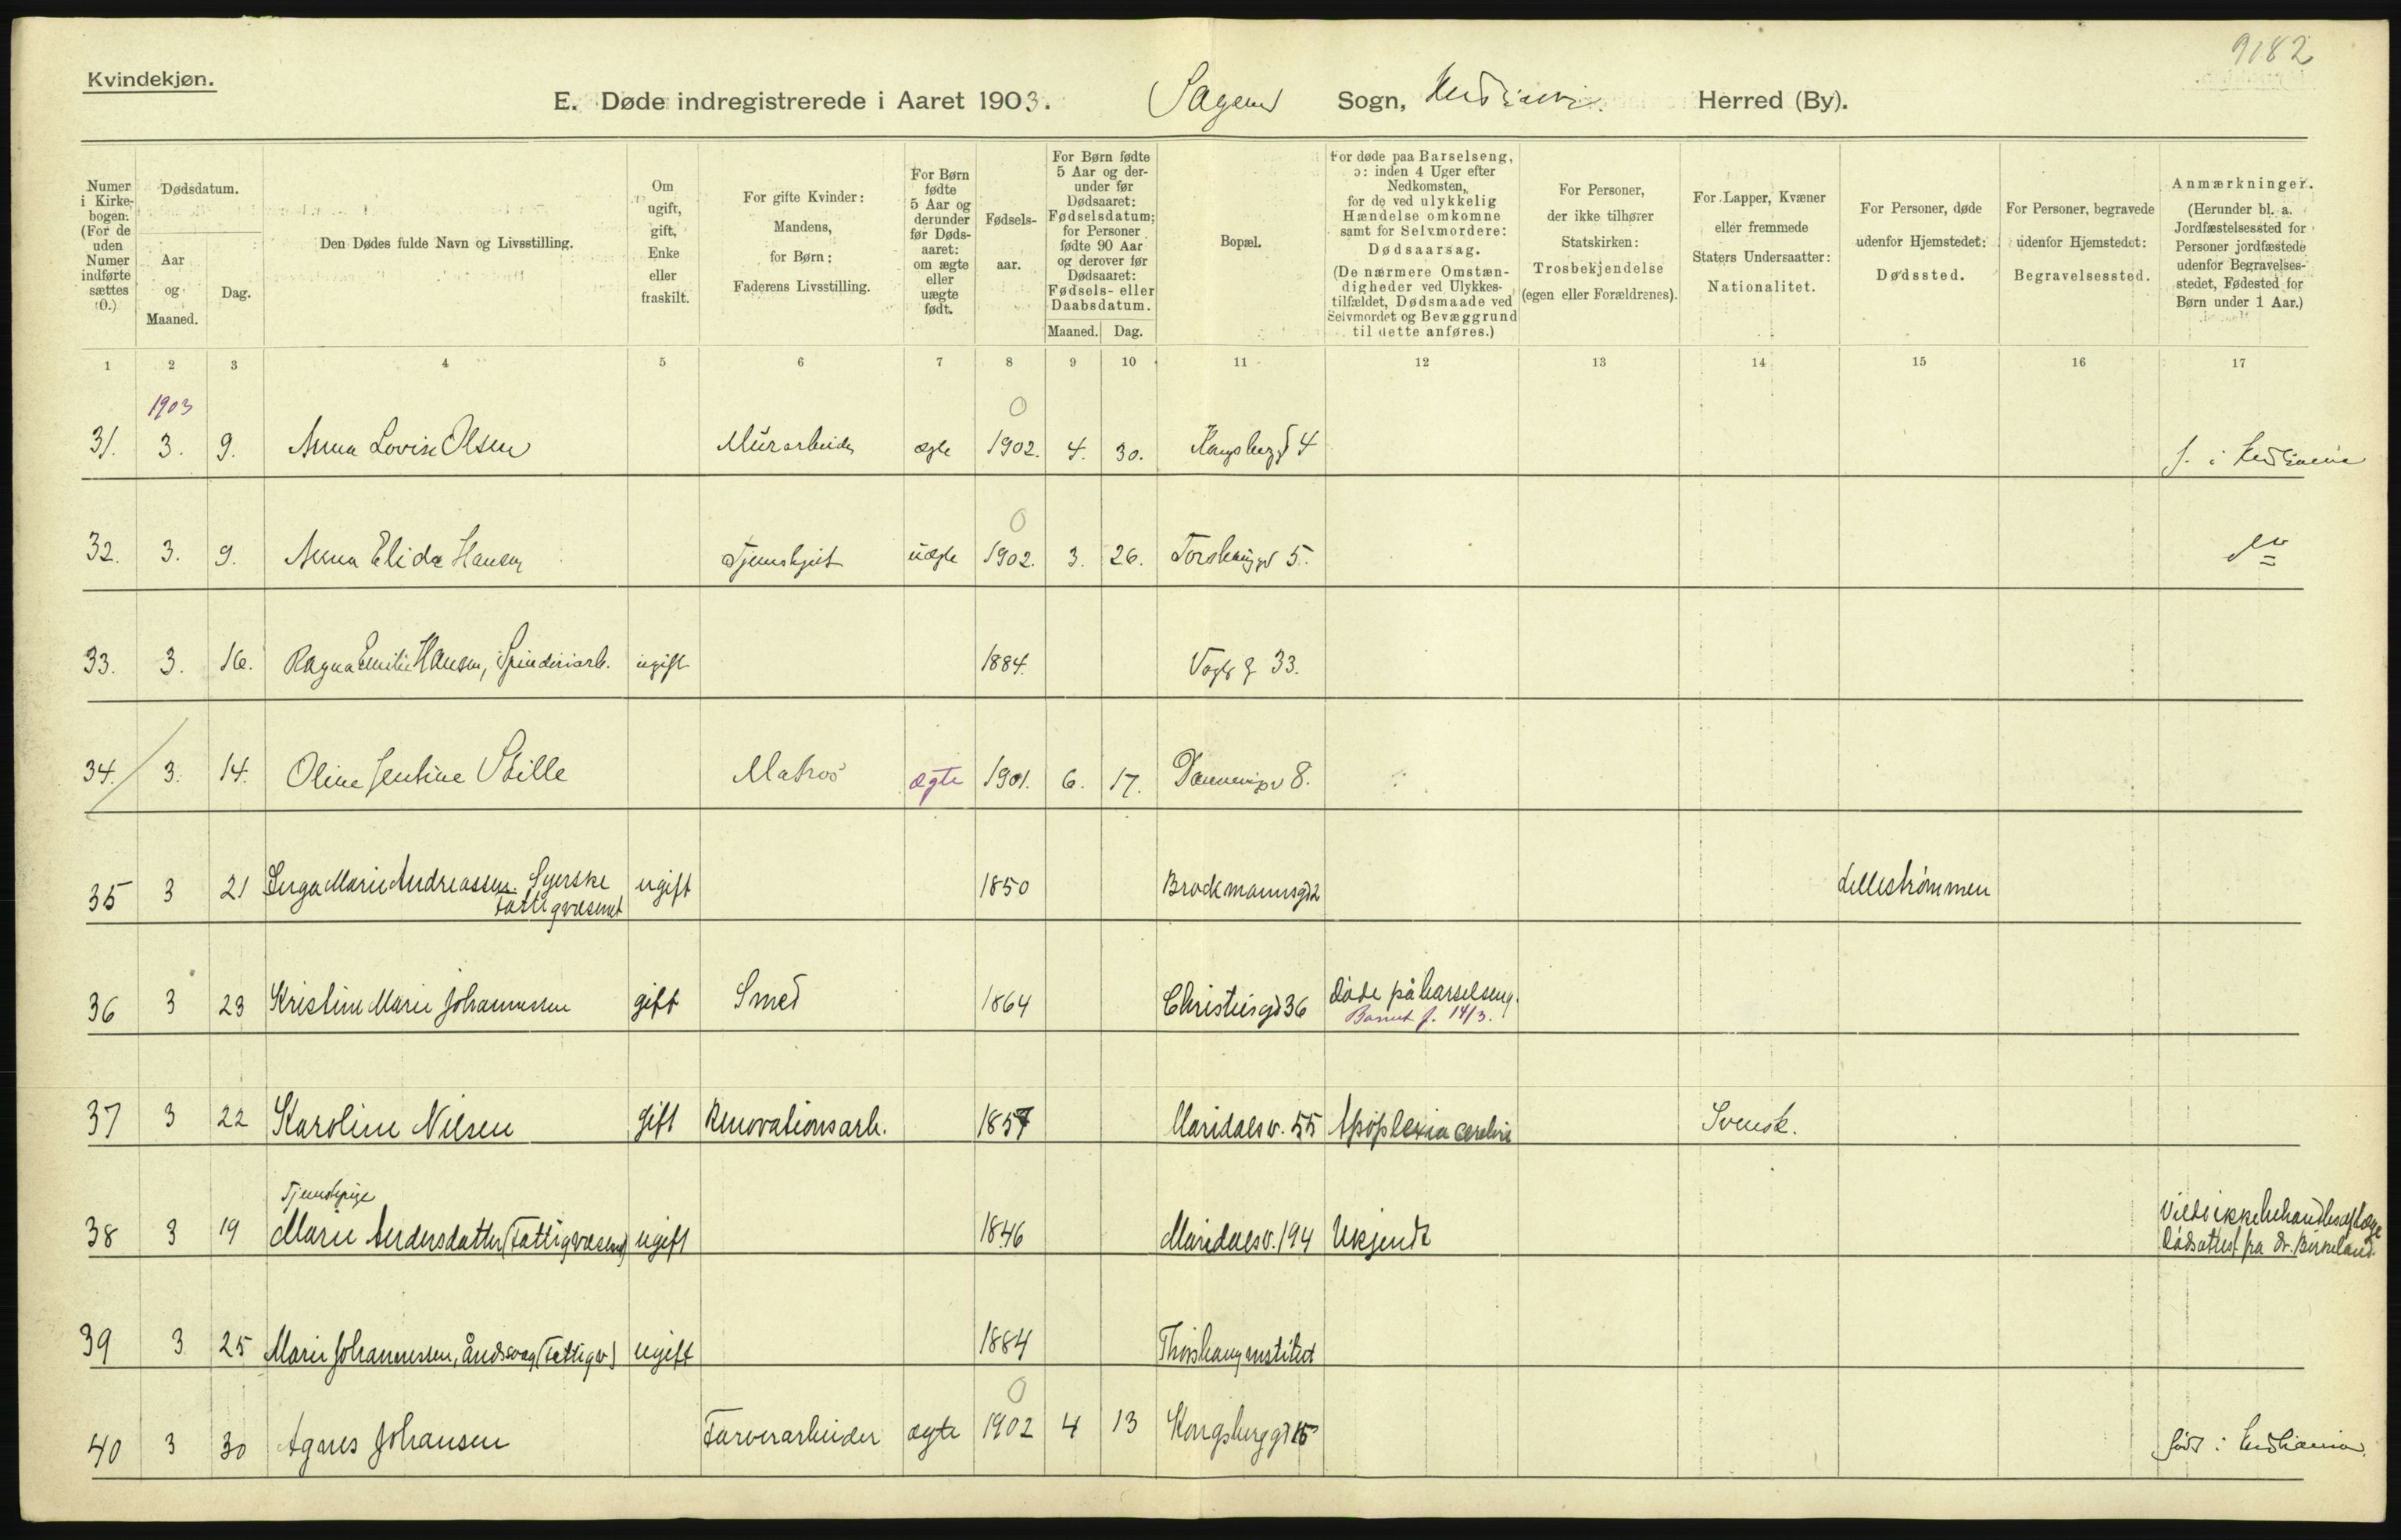 9182
Kvindekjøn.
E. Døde indregistrerede i Aaret 1903. Sagene Sogn, Kristiania Herred (By).
Numer i Kirkebogen. (For de uden Numer indførte sættes 0.)
Dødsdatum.
Aar og Maaned.
Dag.
Den Dødes fulde Navn og Livsstilling.
Om ugift, gift, Enke eller fraskilt.
For gifte Kvinder: Mandens, for Børn: Faderens Livsstilling.
For Børn fødte 5 Aar og derunder før Dødsaaret: om ægte eller uægte født.
Fødselsaar.
For Børn fødte 5 Aar og derunder før Dødsaaret: Fødselsdatum; for Personer fødte 90 Aar og derover før Dødsaaret: Fødsels- eller Daabsdatum.
Maaned. Dag.
Bopæl.
For døde paa Barselseng, ɔ: inden 4 Uger efter Nedkomsten, for de ved ulykkelig Hændelse omkomne samt for Selvmordere: Dødsaarsag. (De nærmere Omstændigheder ved Ulykkestilfældet, Dødsmaade ved Selvmordet og Bevæggrund til dette anføres.)
For Personer, der ikke tilhører Statskirken: Trosbekjendelse (egen eller Forældrenes).
For Lapper, Kvæner eller fremmede Staters Undersaatter: Nationalitet.
For Personer, døde udenfor Hjemstedet: Dødssted.
For Personer, begravede udenfor Hjemstedet: Begravelsessted.
Anmærkninger. (Herunder bl. a. Jordfæstelsessted for Personer jordfæstede udenfor Begravelsesstedet, Fødested for Børn under 1 Aar.)
1 2 3 4 5 6 7 8 9 10 11 12 13 14 15 16 17
1903 0
31. 3. 9. Anna Lovise Olsen Murarbeider ægte 1902. 4. 30. 4 f. i Kristiania
0
32. 3. 9. Anna Elida Hansen uægte 1902. 3. 26. Torshauggd 5. do
33. 3. 16. Ragna Emilie Hansen, Spinderiarb. ugift 1884. Vogts g 33.
34. 3. 14. Oline Jentine Stille Matros ægte 1901. 6. 17. 8.
35 3 21 Inga Marie Andreassen. Syerske ugift 1850 Brockmannsgd 2 Lillestrømmen
Fattigvæsenet
36 3 23 Kristine Marie Johannessen gift Smed 1864 Christiesgd 36 Døde på barselseng.
Barnet f. 14/3.
37 3 22 Karoline Nilsen gift Renovationsarb. 1857 Maridalsv. 55 Apoplexia cerebri Svensk.
Tjenestepige
38 3 19 Marie Andersdatter (Fattigvæsenet) ugift 1846 Maridalsv. 194 Ukjendt Vilde ikke behandles af læge
Dødsattest fra dr. Birkeland.
39 3 25 Marie Johannessen, åndssvag (Fattigv) ugift 1884 Thorshaug institut
0
40 3 30 Agnes Johansen Farverarbeider ægte 1902 4 13 Kongsberggd 15 født i Kristiania.